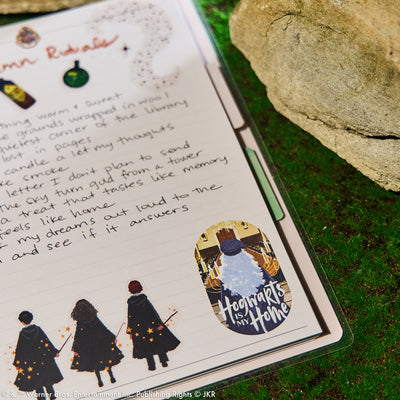 umn Rituals
thing warm & sweet
e grounds wrapped in wool
quietest corner of the library
lost in pages
candle & let my thoughts
smoke
letter I don't plan to send
the sky turn gold from a tower
a treat that tastes like memory
feels like home
my dreams out loud to the
and see if it answers
Hogwarts
IS MY
Home
Warner Bros. Entertainment Inc. Publishing Rights © JKR